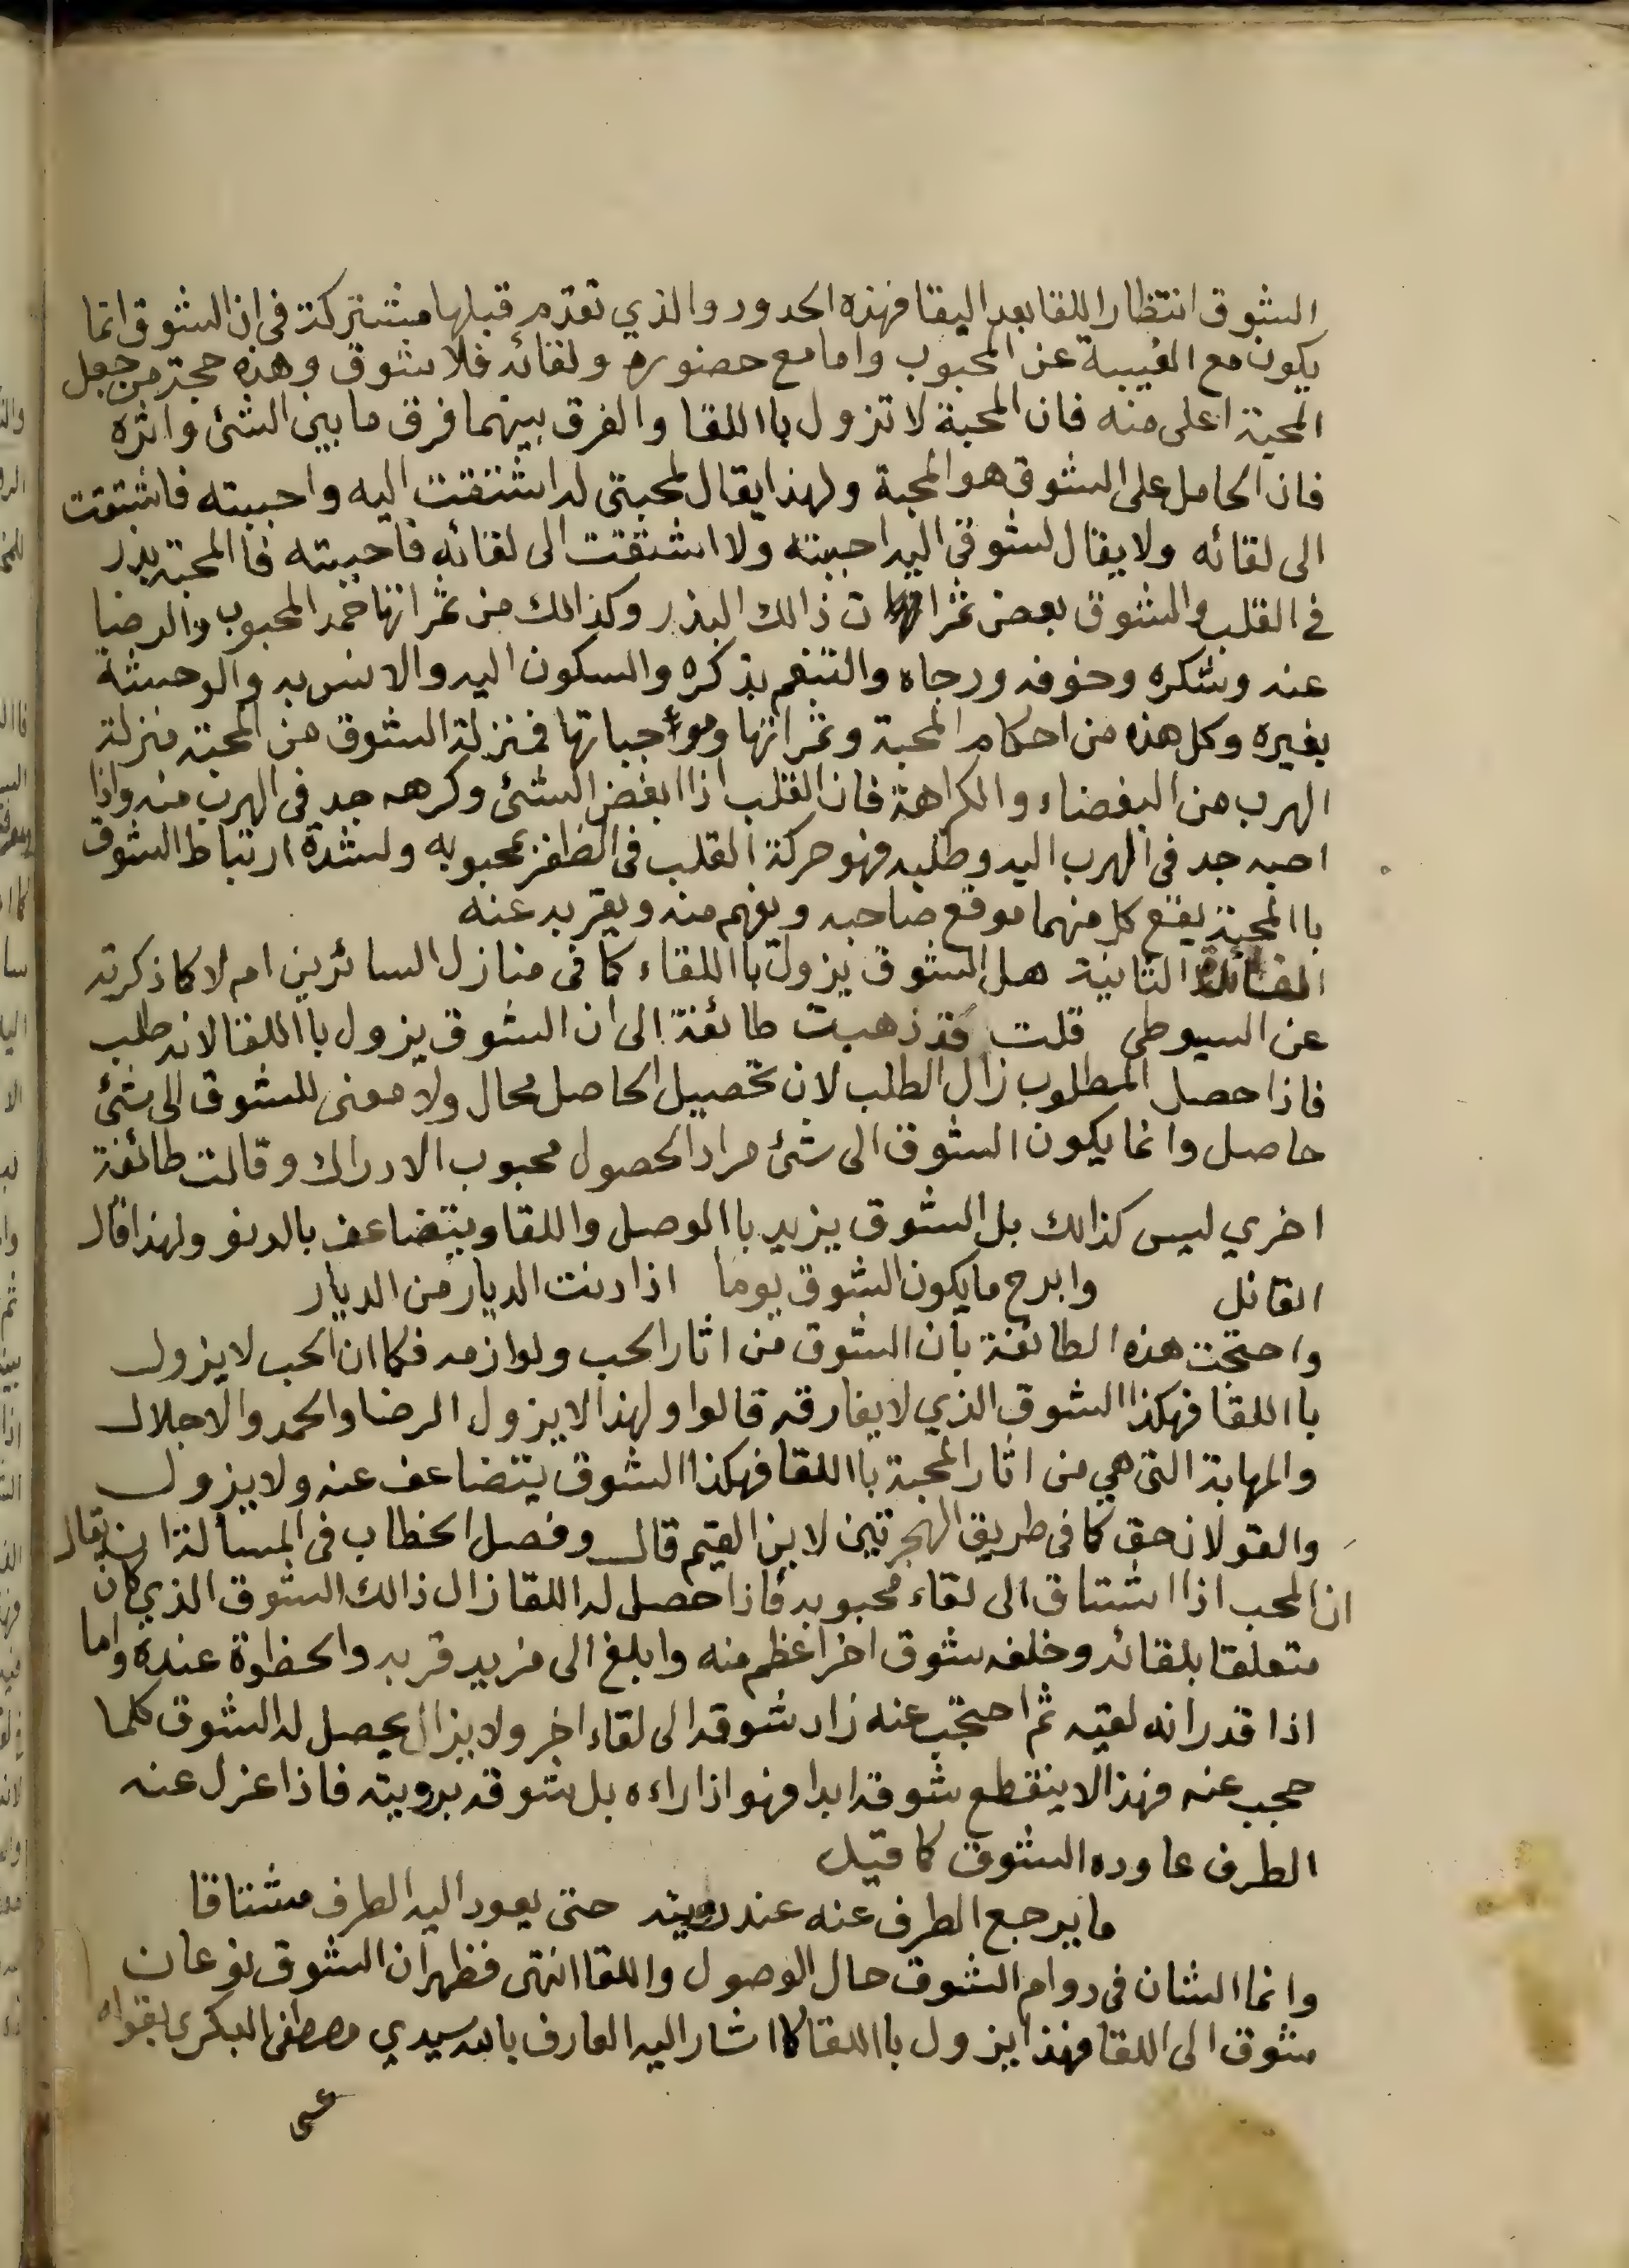 الشوق انتظار اللقا بعد اليقا فهذه الحدور والذي تقدم قبلها مشتركة في ان الشوق انما
يكون مع الغيبة عن المحبوب واما مع حضوره ولقائه فلا شوق وهذه حجة من جعل
المحبة اعلى منه فان المحبة لا تزول باا للقا والفرق بينهما فرق ما بين الشئ واثره
فان الحامل على الشوق هو المحبة ولهذا يقال لمحبتى له اشتقت اليه واحببته فاشتقت
الى لقائه ولا يقال لشوقى اليه احببته ولا اشتقت الى لقائه فاحببته فاالمحبة بذر
في القلب والشوق بعض ثمرات ذالك البذر وكذالك من ثمراتها حمد المحبوب والرضا
عنه وشكره وخوفه ورجاه والتنعم بذكره والسكون اليه والانس به والوحشة
بغيره وكل هذه من احكام المحبة وثمراتها وموجباتها فمنزلة الشوق من المحبة منزلة
الهرب من البغضاء والكراهة فان القلب اذا ابغض الشئ وكرهه جد في الهرب منه واذا
احبه جد في الهرب اليه وطلبه فهو حركة القلب في الظفر بمحبوبه ولشدة ارتباط الشوق
باالمحبة يقع كل منهما موقع صاحبه ويفهم منه ويعبر به عنه
الفائدة الثانية هل الشوق يزول باا للقاء كما فى منازل السائرين ام لا كما ذكرته
عن السيوطي قلت قد ذهبت طائفة الى ان الشوق يزول باا للقا لانه طلب
فاذا حصل المطلوب زال الطلب لان تحصيل الحاصل محال ولا معنى للشوق الى شئ
حاصل وانما يكون الشوق الى شئ مراد الحصول محبوب الادراك وقالت طائفة
اخري ليس كذالك بل الشوق يزيد باالوصل واللقا ويتضاعف بالدنو ولهذا قال
القائل وابرح ما يكون الشوق يوما اذا دنت الديار من الديار
واحتجت هذه الطائفة بان الشوق من اثار الحب ولوازمه فكما ان الحب لا يزول
باا للقا فهكذا الشوق الذي لا يفارقه قالوا ولهذا لا يزول الرضا والحمد والاجلال
والمهابة التي هي من اثار المحبة باا للقا فهكذا الشوق يتضاعف عنه ولا يزول
والقولان حق كما فى طريق الهجرتين لابن القيم قال وفصل الخطاب فى المسألة ان يقال
ان المحب اذا اشتاق الى لقاء محبوبه فاذا حصل له اللقا زال ذالك الشوق الذي كان
متعلقا بلقائه وخلفه شوق اخر اعظم منه وابلغ الى مزيد قربه والحظوة عنده واما
اذا قدر انه لقيه ثم احتجب عنه زاد شوقه الى لقاء اخر ولا يزال يحصل له الشوق كلما
حجب عنه فهذا لا ينقطع شوقه ابدا فهو اذا راءه بل شوقه برويته فاذا عزل عنه
الطرف عاوده الشوق كما قيل
ما يرجع الطرف عنه عند رويته حتى يعود اليه الطرف مشتاقا
وانما الشان في دوام الشوق حال الوصول واللقا انتهى فظهر ان الشوق نوعان
شوق الى اللقا فهذا يزول باا للقا كما اشار اليه العارف بالله سيدي مصطفى البكري بقوله